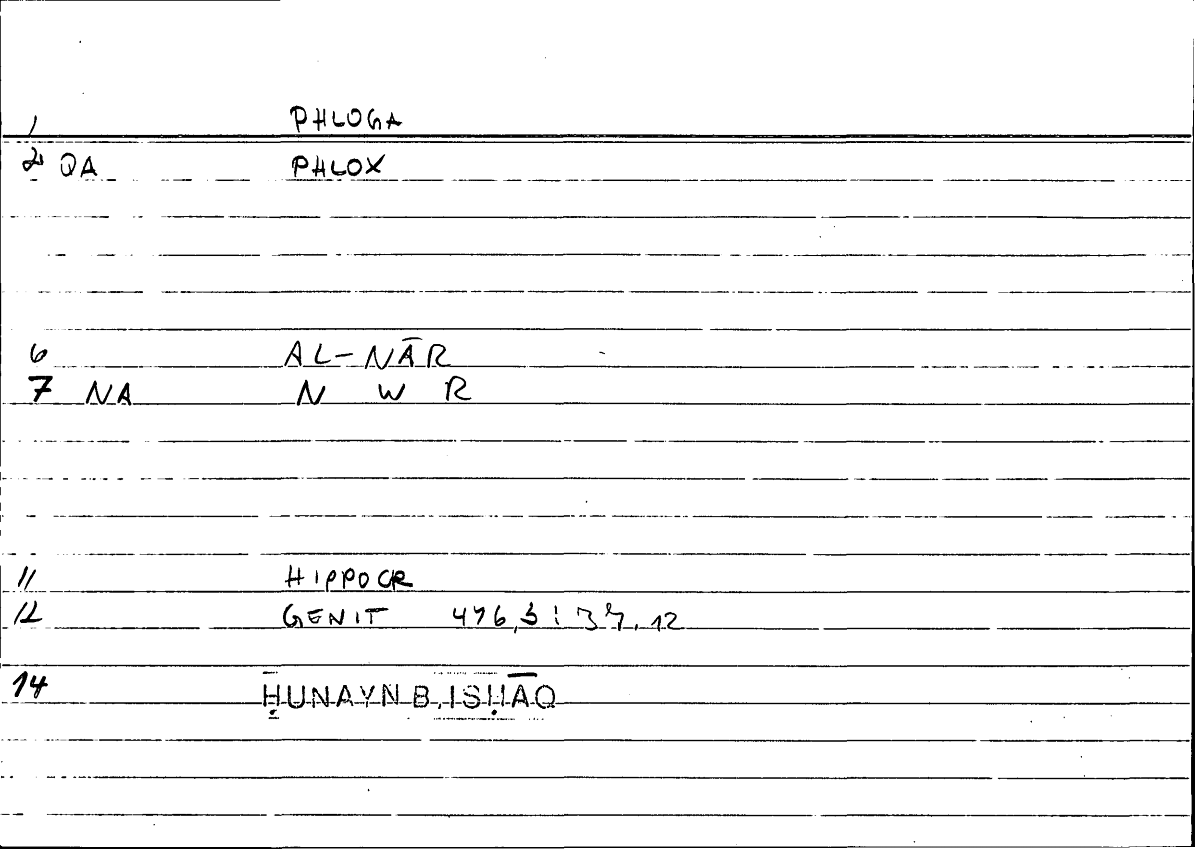 1 PHLOGA
2 QA PHLOX
6 AL-NĀR
7 NA N W R
11 HIPPOCR
12 GENIT 476,3: 37,12
14 ḤUNAYN B. ISḤĀQ